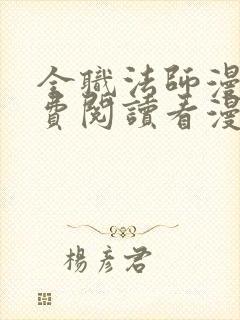 全職法師漫
費閱讀看漫
楊彥君